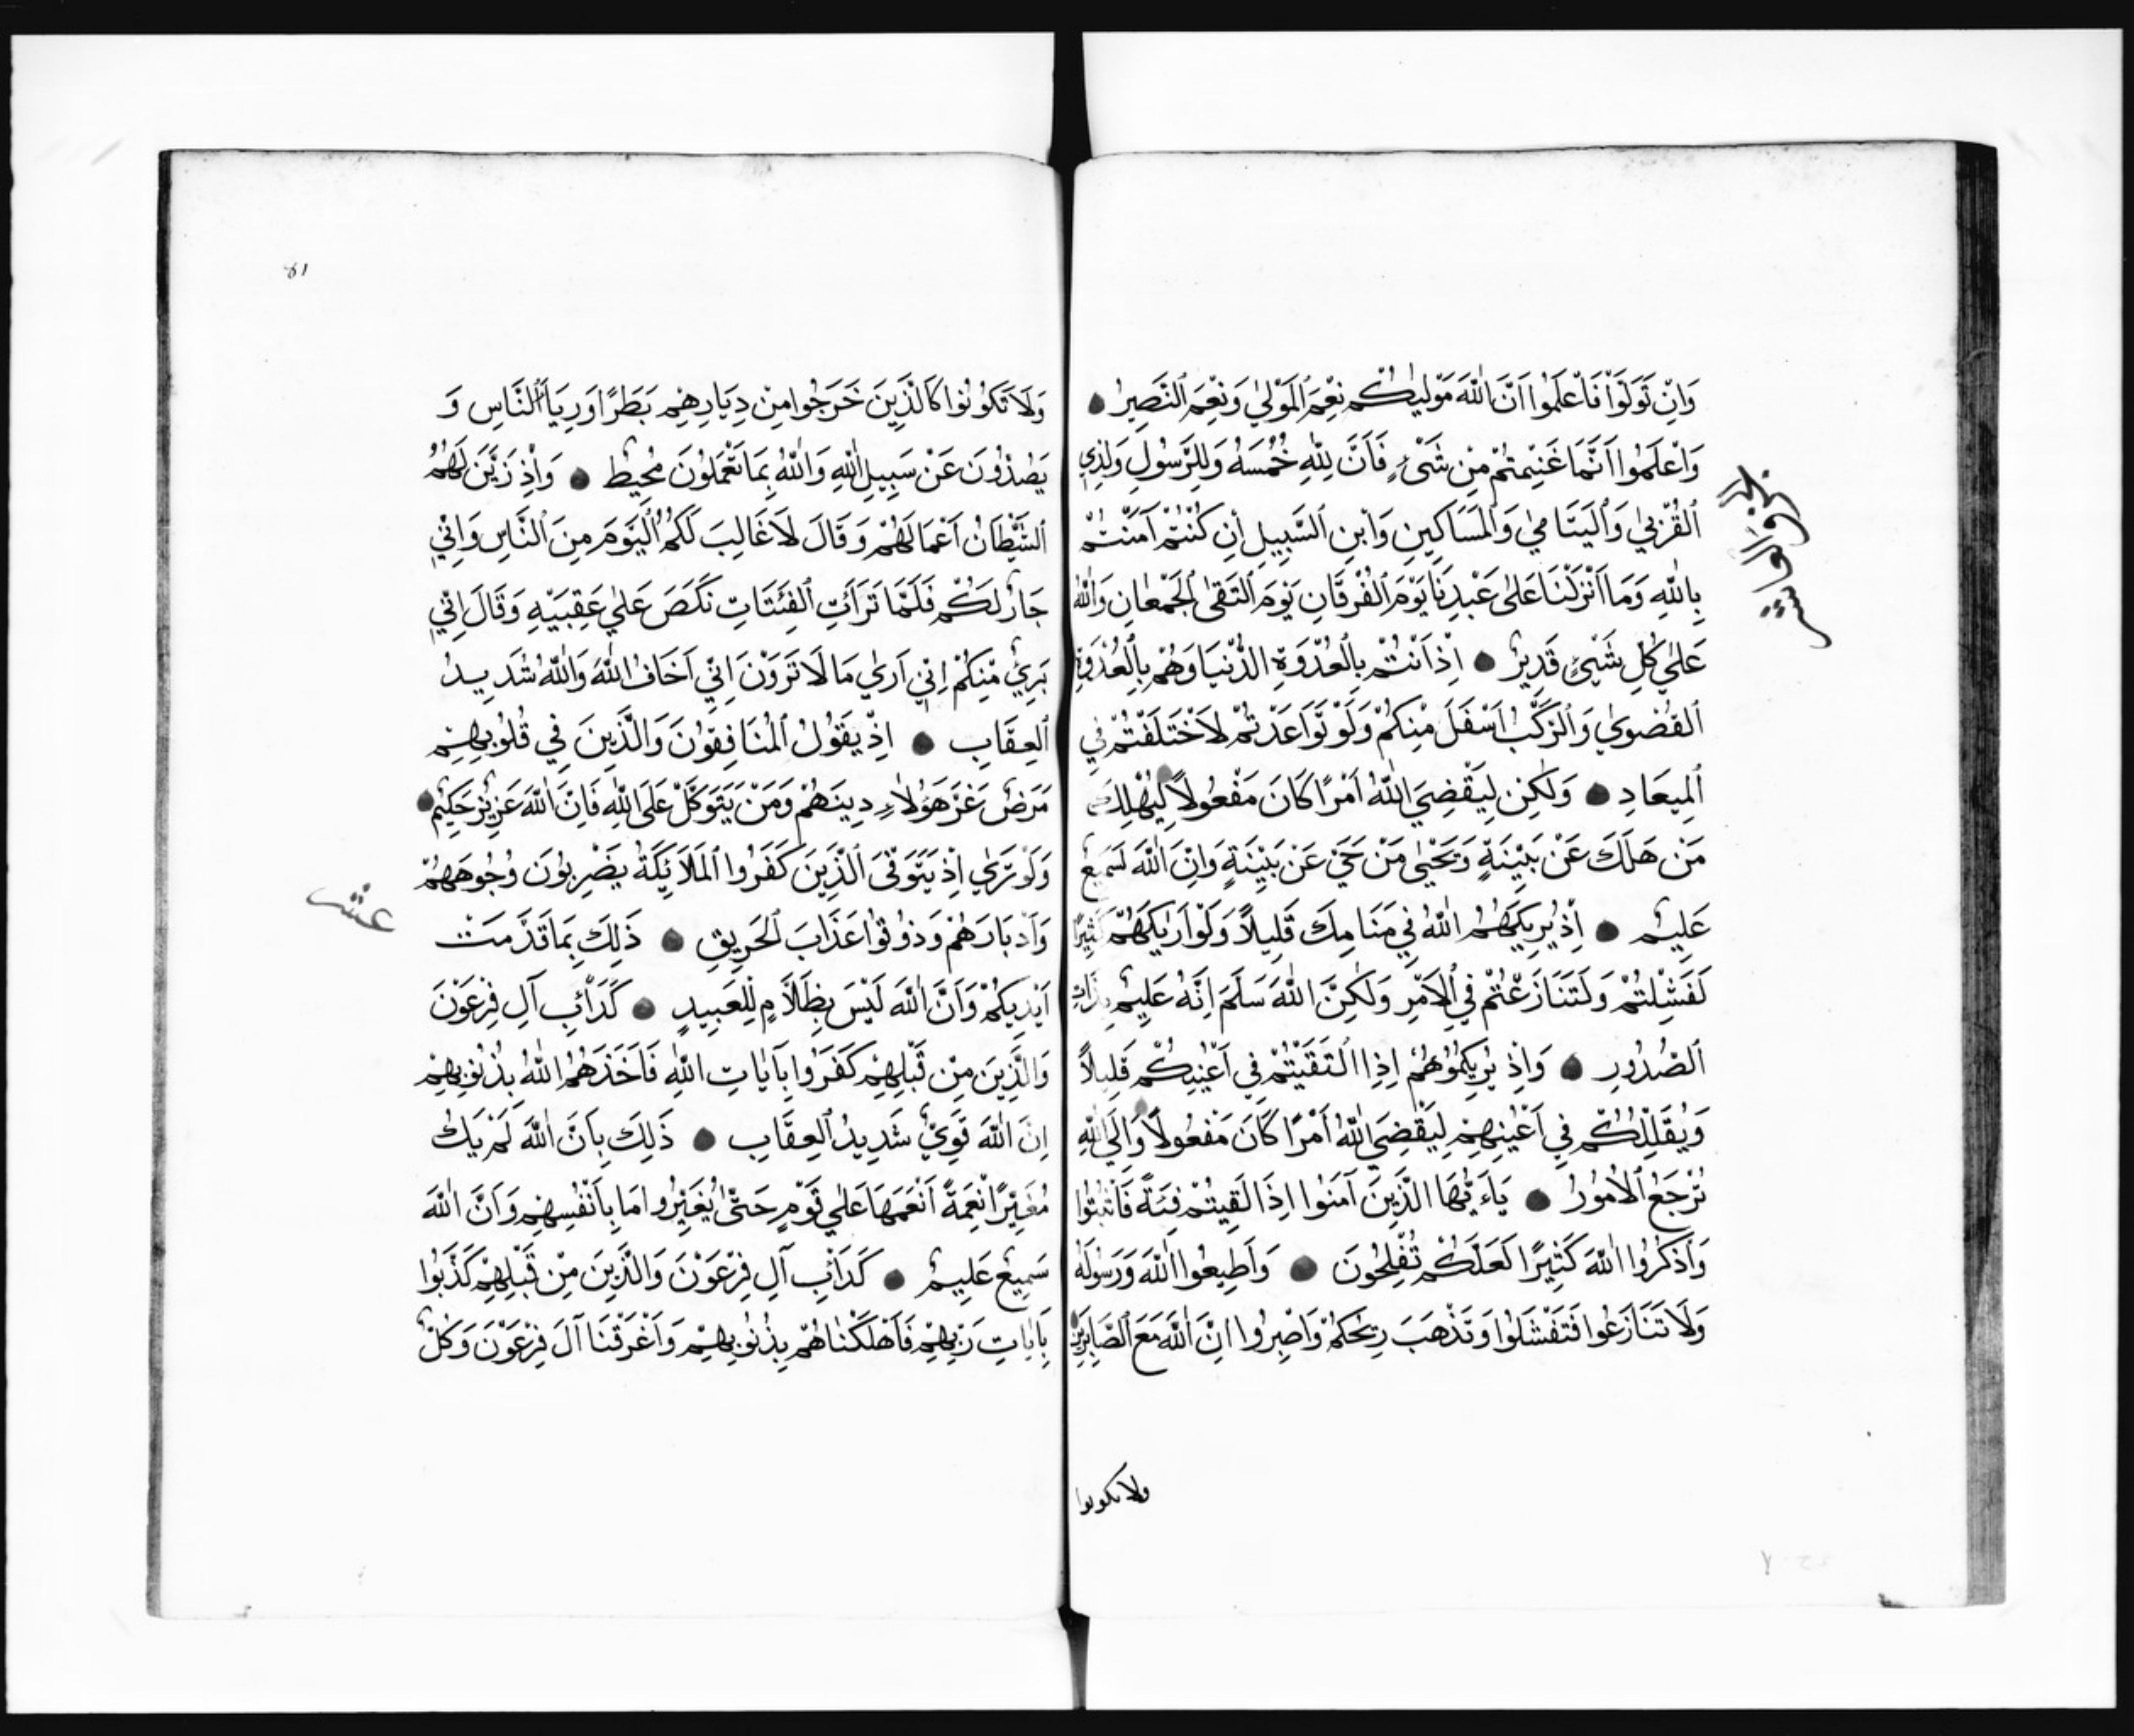 وَاِنْ تَوَلَّوْا فَاعْلَمُوا اَنَّ اللّٰهَ مَوْلٰيكُمْ نِعْمَ الْمَوْلٰي وَنِعْمَ النَّصِيرُ
وَاعْلَمُوا اَنَّمَا غَنِمْتُمْ مِنْ شَىْءٍ فَاَنَّ لِلّٰهِ خُمُسَهُ وَلِلرَّسُولِ وَلِذِي
الْقُرْبٰي وَالْيَتَامٰي وَالْمَسَاكِينِ وَابْنِ السَّبِيلِ اِنْ كُنْتُمْ آمَنْتُمْ
بِاللّٰهِ وَمَا اَنْزَلْنَا عَلٰى عَبْدِنَا يَوْمَ الْفُرْقَانِ يَوْمَ الْتَقَى الْجَمْعَانِ وَاللّٰهُ
عَلٰي كُلِّ شَيْئٍ قَدِيرٌ اِذْ اَنْتُمْ بِالْعُدْوَةِ الدُّنْيَا وَهُمْ بِالْعُدْوَةِ
الْقُصْوٰي وَالرَّكْبُ اَسْفَلَ مِنْكُمْ وَلَوْ تَوَاعَدْتُمْ لَاخْتَلَفْتُمْ فِي
الْمِيعَادِ وَلٰكِنْ لِيَقْضِيَ اللّٰهُ اَمْرًا كَانَ مَفْعُولًا لِيَهْلِكَ
مَنْ هَلَكَ عَنْ بَيِّنَةٍ وَيَحْيٰى مَنْ حَيَّ عَنْ بَيِّنَةٍ وَاِنَّ اللّٰهَ لَسَمِيعٌ
عَلِيمٌ اِذْ يُرِيكَهُمُ اللّٰهُ فِي مَنَامِكَ قَلِيلًا وَلَوْ اَرٰيكَهُمْ كَثِيرًا
لَفَشِلْتُمْ وَلَتَنَازَعْتُمْ فِي الْاَمْرِ وَلٰكِنَّ اللّٰهَ سَلَّمَ اِنَّهُ عَلِيمٌ بِذَاتِ
الصُّدُورِ وَاِذْ يُرِيكُمُوهُمْ اِذِ الْتَقَيْتُمْ فِي اَعْيُنِكُمْ قَلِيلًا
وَيُقَلِّلُكُمْ فِي اَعْيُنِهِمْ لِيَقْضِيَ اللّٰهُ اَمْرًا كَانَ مَفْعُولًا وَاِلَي اللّٰهِ
تُرْجَعُ الْاُمُورُ يَاءَيُّهَا الَّذِينَ آمَنُوا اِذَا لَقِيتُمْ فِئَةً فَاثْبُتُوا
وَاذْكُرُوا اللّٰهَ كَثِيرًا لَعَلَّكُمْ تُفْلِحُونَ وَاَطِيعُوا اللّٰهَ وَرَسُولَهُ
وَلَا تَنَازَعُوا فَتَفْشَلُوا وَتَذْهَبَ رِيحُكُمْ وَاصْبِرُوا اِنَّ اللّٰهَ مَعَ الصَّابِرِينَ
ولا تكونوا
الجزو العاشر
وَلَا تَكُونُوا كَالَّذِينَ خَرَجُوا مِنْ دِيَارِهِمْ بَطَرًا وَرِيَاءَ النَّاسِ وَ
يَصُدُّونَ عَنْ سَبِيلِ اللّٰهِ وَاللّٰهُ بِمَا تَعْمَلُونَ مُحِيطٌ وَاِذْ زَيَّنَ لَهُمُ
الشَّيْطَانُ اَعْمَالَهُمْ وَقَالَ لَا غَالِبَ لَكُمُ الْيَوْمَ مِنَ النَّاسِ وَاِنِّي
جَارٌ لَكُمْ فَلَمَّا تَرَاَتِ الْفِئَتَانِ نَكَصَ عَلٰي عَقِبَيْهِ وَقَالَ اِنِّي
بَرِيٌ مِنْكُمْ اِنِّي اَرٰي مَا لَا تَرَوْنَ اِنِّي اَخَافُ اللّٰهَ وَاللّٰهُ شَدِيدُ
الْعِقَابِ اِذْ يَقُولُ الْمُنَافِقُونَ وَالَّذِينَ فِي قُلُوبِهِمْ
مَرَضٌ غَرَّ هَؤُلَاءِ دِينُهُمْ وَمَنْ يَتَوَكَّلْ عَلَى اللّٰهِ فَاِنَّ اللّٰهَ عَزِيزٌ حَكِيمٌ
وَلَوْ تَرٰي اِذْ يَتَوَفَّى الَّذِينَ كَفَرُوا الْمَلَائِكَةُ يَضْرِبُونَ وُجُوهَهُمْ
وَاَدْبَارَهُمْ وَذُوقُوا عَذَابَ الْحَرِيقِ ذَلِكَ بِمَا قَدَّمَتْ
اَيْدِيكُمْ وَاَنَّ اللّٰهَ لَيْسَ بِظَلَّامٍ لِلْعَبِيدِ كَدَاْبِ آلِ فِرْعَوْنَ
وَالَّذِينَ مِنْ قَبْلِهِمْ كَفَرُوا بِآيَاتِ اللّٰهِ فَاَخَذَهُمُ اللّٰهُ بِذُنُوبِهِمْ
اِنَّ اللّٰهَ قَوِيٌّ شَدِيدُ الْعِقَابِ ذَلِكَ بِاَنَّ اللّٰهَ لَمْ يَكُ
مُغَيِّرًا نِعْمَةً اَنْعَمَهَا عَلٰي قَوْمٍ حَتّٰى يُغَيِّرُوا مَا بِاَنْفُسِهِمْ وَاَنَّ اللّٰهَ
سَمِيعٌ عَلِيمٌ كَدَاْبِ آلِ فِرْعَوْنَ وَالَّذِينَ مِنْ قَبْلِهِمْ كَذَّبُوا
بِآيَاتِ رَبِّهِمْ فَاَهْلَكْنَاهُمْ بِذُنُوبِهِمْ وَاَغْرَقْنَا آلَ فِرْعَوْنَ وَكُلٌّ
عشر